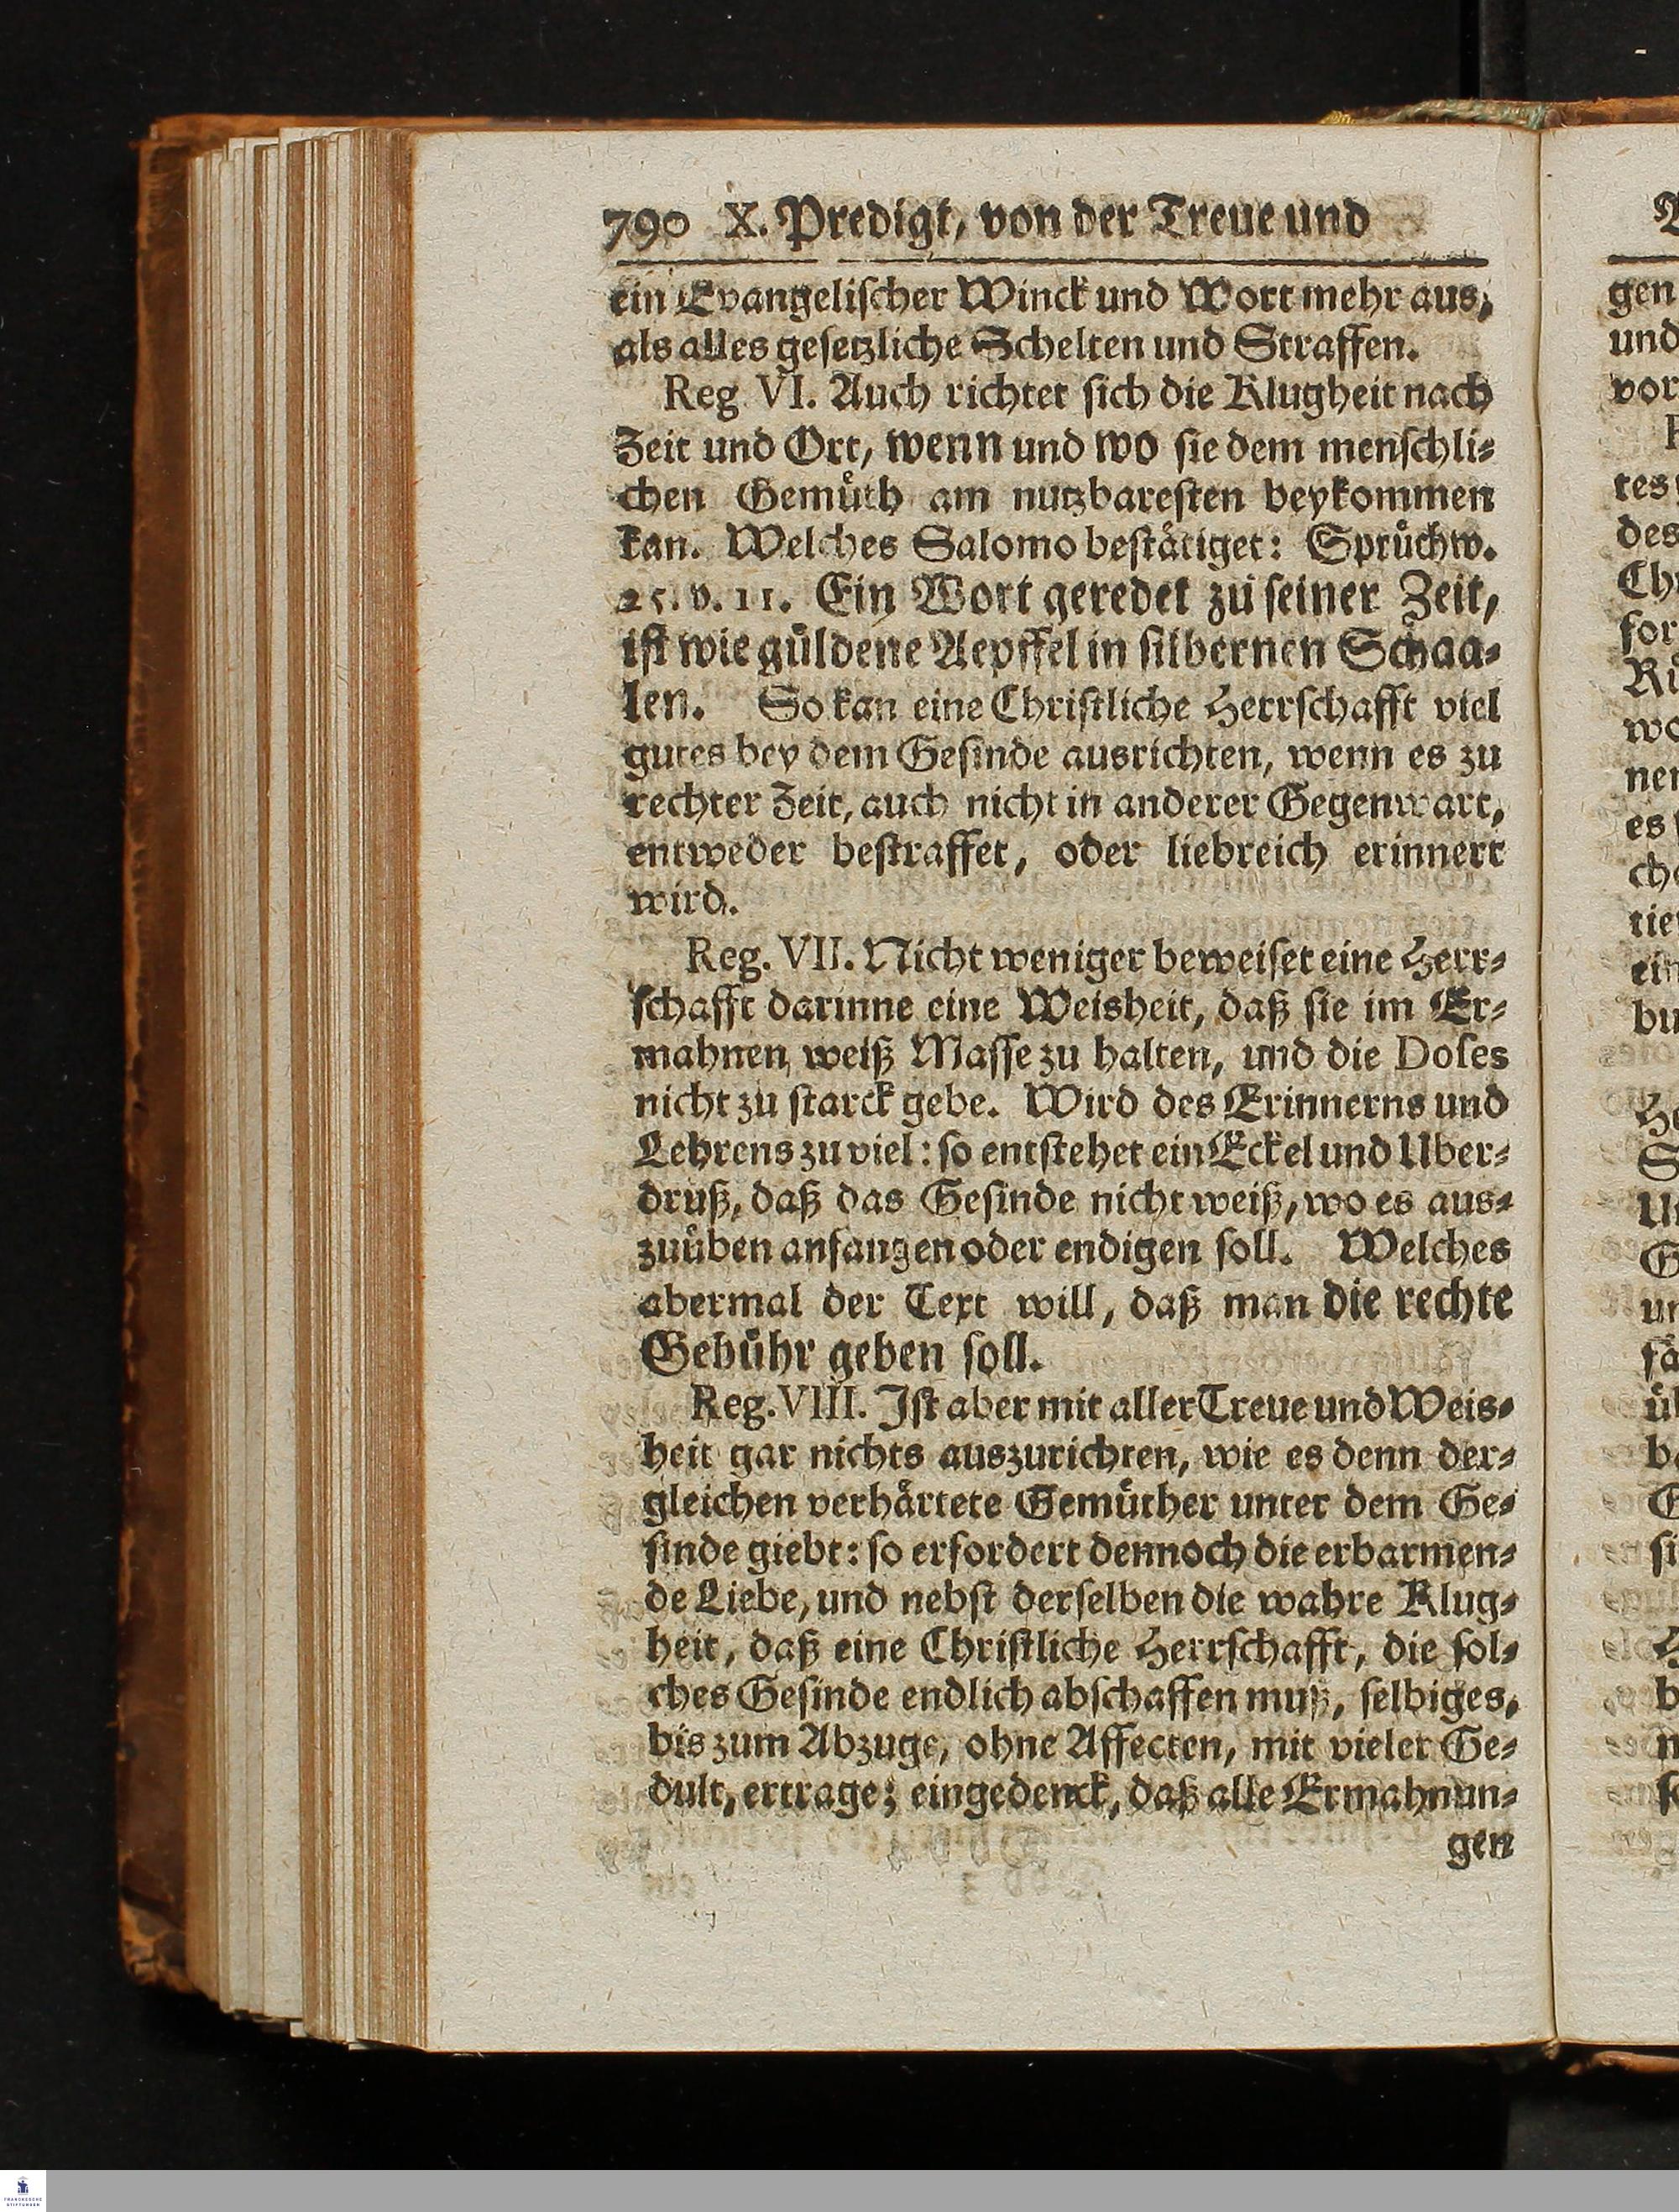 790 X. Predigt, von der Treue und
ein Evangeliſcher Winck und Wort mehr aus,
als alles geſetzliche Schelten und Straffen.
Reg. VI. Auch richtet ſich die Klugheit nach
Zeit und Ort, wenn und wo ſie dem menſchli⸗
chen Gemuͤth am nutzbareſten beykommen
kan. Welches Salomo beſtaͤtiget: Spruͤchw.
25. v. 11. Ein Wort geredet zu ſeiner Zeit,
iſt wie guͤldene Aepffel in ſilbernen Schaa⸗
len. So kan eine Chriſtliche Herrſchafft viel
gutes bey dem Geſinde ausrichten, wenn es zu
rechter Zeit, auch nicht in anderer Gegenwart,
entweder beſtraffet, oder liebreich erinnert
wird.
Reg. VII. Nicht weniger beweiſet eine Herr⸗
ſchafft darinne eine Weisheit, daß ſie im Er⸗
mahnen weiß Maſſe zu halten, und die Doſes
nicht zu ſtarck gebe. Wird des Erinnerns und
Lehrens zu viel: ſo entſtehet ein Eckel und Uber⸗
druß, daß das Geſinde nicht weiß, wo es aus⸗
zuuͤben anfangen oder endigen ſoll. Welches
abermal der Text will, daß man die rechte
Gebuͤhr geben ſoll.
Reg. VIII. Iſt aber mit aller Treue und Weis⸗
heit gar nichts auszurichten, wie es denn der⸗
gleichen verhaͤrtete Gemuͤther unter dem Ge⸗
ſinde giebt: ſo erfordert dennoch die erbarmen⸗
de Liebe, und nebſt derſelben die wahre Klug⸗
heit, daß eine Chriſtliche Herrſchafft, die ſol⸗
ches Geſinde endlich abſchaffen muß, ſelbiges,
bis zum Abzuge, ohne Affecten, mit vieler Ge⸗
dult, ertrage; eingedenck, daß alle Ermahnun⸗
gen
FRANCKESCHE
STIFTUNGEN